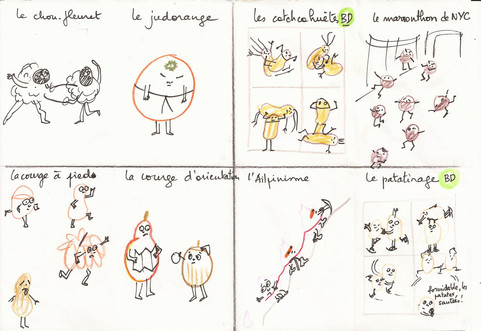 le chou-fleuret
le judorange
les catchcahuètes BD
le marronthon de NYC
la courge à pieds
la courge d'orientation
l'Ailpinisme
le patatinage BD
formidable, les
patates
sautées!